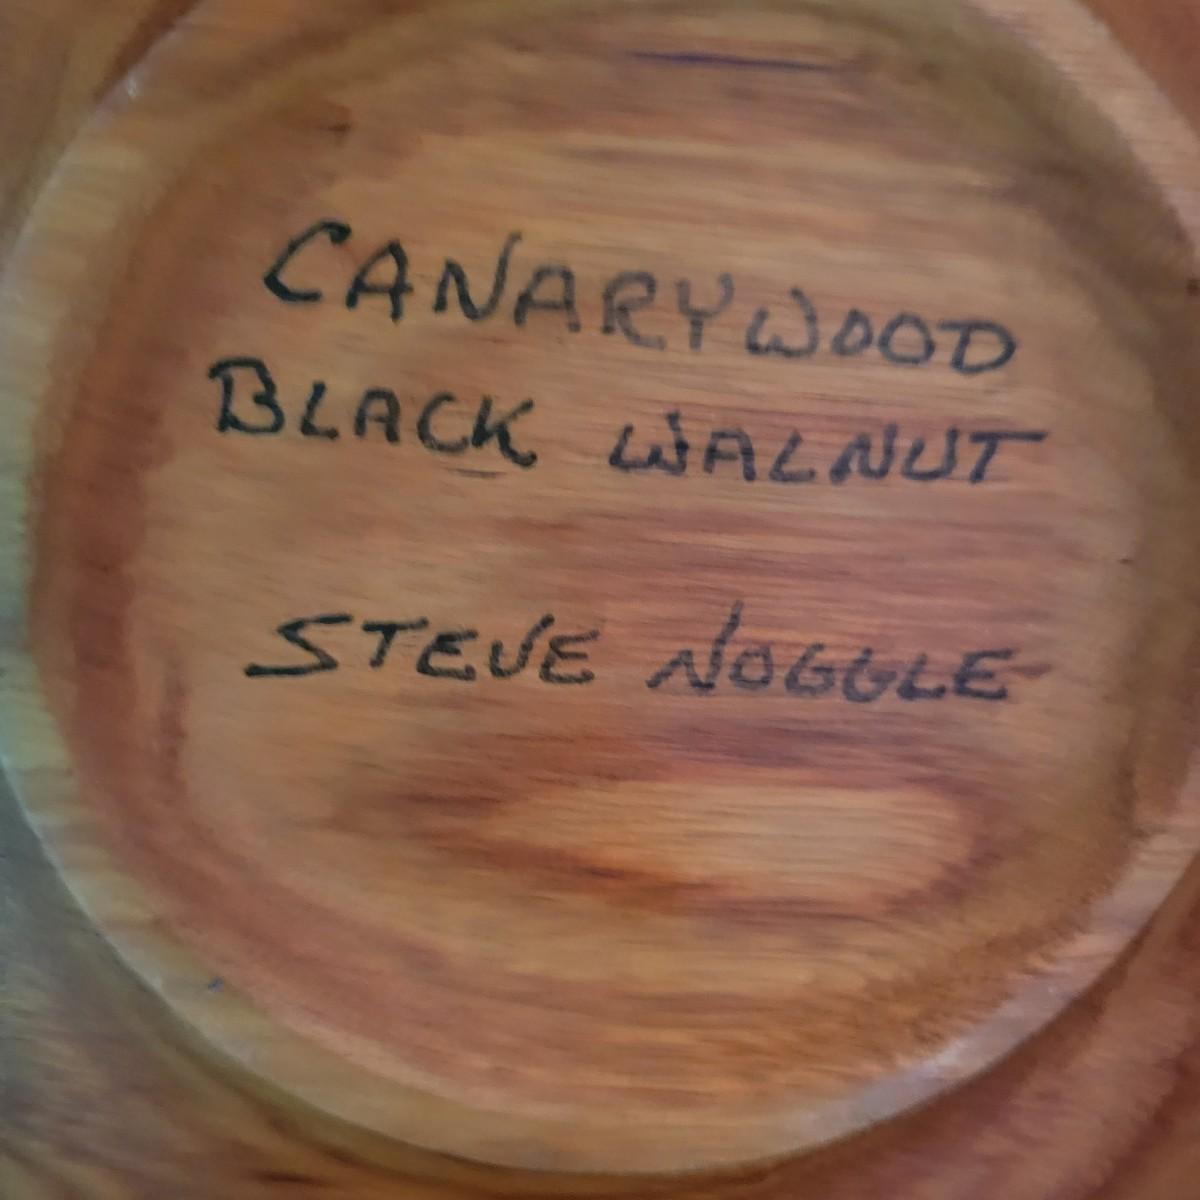 CANARYWOOD
BLACK WALNUT
STEVE NOGGLE